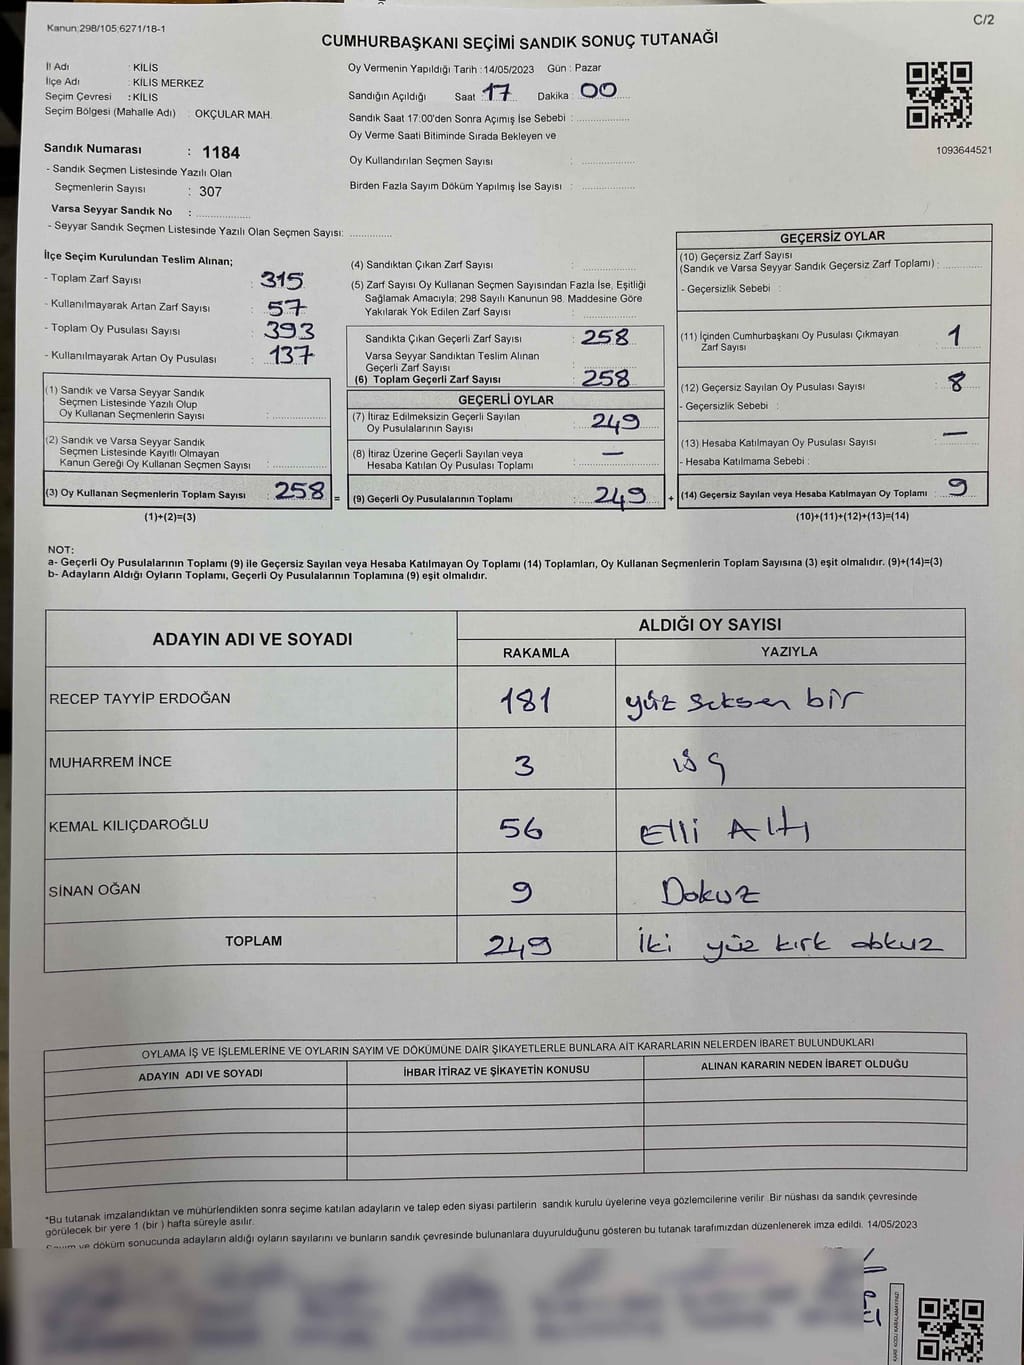 Kanun:298/105;6271/18-1
C/2
CUMHURBAŞKANI SEÇİMİ SANDIK SONUÇ TUTANAĞI
İl Adı : KİLİS
İlçe Adı : KİLİS MERKEZ
Seçim Çevresi : KİLİS
Seçim Bölgesi (Mahalle Adı) : OKÇULAR MAH.
Sandık Numarası : 1184
- Sandık Seçmen Listesinde Yazılı Olan
Seçmenlerin Sayısı : 307
Varsa Seyyar Sandık No : ..............
- Seyyar Sandık Seçmen Listesinde Yazılı Olan Seçmen Sayısı: ..............
Oy Vermenin Yapıldığı Tarih : 14/05/2023 Gün : Pazar
Sandığın Açıldığı Saat 17 Dakika : 00
Sandık Saat 17:00'den Sonra Açımış İse Sebebi : ..............
Oy Verme Saati Bitiminde Sırada Bekleyen ve
Oy Kullandırılan Seçmen Sayısı : ..............
Birden Fazla Sayım Döküm Yapılmış İse Sayısı : ..............
1093644521
İlçe Seçim Kurulundan Teslim Alınan;
- Toplam Zarf Sayısı : 315
- Kullanılmayarak Artan Zarf Sayısı : 57
- Toplam Oy Pusulası Sayısı : 393
- Kullanılmayarak Artan Oy Pusulası : 137
(1) Sandık ve Varsa Seyyar Sandık
Seçmen Listesinde Yazılı Olup
Oy Kullanan Seçmenlerin Sayısı : ..............
(2) Sandık ve Varsa Seyyar Sandık
Seçmen Listesinde Kayıtlı Olmayan
Kanun Gereği Oy Kullanan Seçmen Sayısı : ..............
(3) Oy Kullanan Seçmenlerin Toplam Sayısı : 258 =
(1)+(2)=(3)
(4) Sandıktan Çıkan Zarf Sayısı : ..............
(5) Zarf Sayısı Oy Kullanan Seçmen Sayısından Fazla İse, Eşitliği
Sağlamak Amacıyla; 298 Sayılı Kanunun 98. Maddesine Göre
Yakılarak Yok Edilen Zarf Sayısı : ..............
Sandıkta Çıkan Geçerli Zarf Sayısı : 258
Varsa Seyyar Sandıktan Teslim Alınan
Geçerli Zarf Sayısı : ..............
(6) Toplam Geçerli Zarf Sayısı : 258
GEÇERLİ OYLAR
(7) İtiraz Edilmeksizin Geçerli Sayılan
Oy Pusulalarının Sayısı : 249
(8) İtiraz Üzerine Geçerli Sayılan veya
Hesaba Katılan Oy Pusulası Toplamı : —
(9) Geçerli Oy Pusulalarının Toplamı : 249 +
GEÇERSİZ OYLAR
(10) Geçersiz Zarf Sayısı
(Sandık ve Varsa Seyyar Sandık Geçersiz Zarf Toplamı) : ..............
- Geçersizlik Sebebi :
(11) İçinden Cumhurbaşkanı Oy Pusulası Çıkmayan
Zarf Sayısı : 1
(12) Geçersiz Sayılan Oy Pusulası Sayısı : 8
- Geçersizlik Sebebi :
(13) Hesaba Katılmayan Oy Pusulası Sayısı : —
- Hesaba Katılmama Sebebi :
(14) Geçersiz Sayılan veya Hesaba Katılmayan Oy Toplamı : 9
(10)+(11)+(12)+(13)=(14)
NOT:
a- Geçerli Oy Pusulalarının Toplamı (9) ile Geçersiz Sayılan veya Hesaba Katılmayan Oy Toplamı (14) Toplamları, Oy Kullanan Seçmenlerin Toplam Sayısına (3) eşit olmalıdır. (9)+(14)=(3)
b- Adayların Aldığı Oyların Toplamı, Geçerli Oy Pusulalarının Toplamına (9) eşit olmalıdır.
ADAYIN ADI VE SOYADI
ALDIĞI OY SAYISI
RAKAMLA YAZIYLA
RECEP TAYYİP ERDOĞAN 181 yüz seksen bir
MUHARREM İNCE 3 üç
KEMAL KILIÇDAROĞLU 56 Elli Altı
SİNAN OĞAN 9 Dokuz
TOPLAM 249 İki yüz kırk dokuz
OYLAMA İŞ VE İŞLEMLERİNE VE OYLARIN SAYIM VE DÖKÜMÜNE DAİR ŞİKAYETLERLE BUNLARA AİT KARARLARIN NELERDEN İBARET BULUNDUKLARI
ADAYIN ADI VE SOYADI İHBAR İTİRAZ VE ŞİKAYETİN KONUSU ALINAN KARARIN NEDEN İBARET OLDUĞU
*Bu tutanak imzalandıktan ve mühürlendikten sonra seçime katılan adayların ve talep eden siyasi partilerin sandık kurulu üyelerine veya gözlemcilerine verilir. Bir nüshası da sandık çevresinde
görülecek bir yere 1 (bir ) hafta süreyle asılır.
Sayım ve döküm sonucunda adayların aldığı oyların sayılarını ve bunların sandık çevresinde bulunanlara duyurulduğunu gösteren bu tutanak tarafımızdan düzenlenerek imza edildi. 14/05/2023
KARE KODU KARALAMAYINIZ!